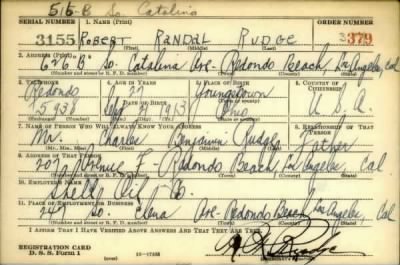 515-B So. Catalina
SERIAL NUMBER 1. NAME (Print) ORDER NUMBER
3155 ROBERT RANDAL RUDGE 379
2. ADDRESS (Print)
626 "B" So. Catalina Ave - Redondo Beach, Los Angeles, Cal
3. TELEPHONE 4. AGE IN YEARS 5. PLACE OF BIRTH 6. COUNTRY OF CITIZENSHIP
Redondo 27 Youngstown
DATE OF BIRTH
5438 1913 Ohio U. S. A.
7. NAME OF PERSON WHO WILL ALWAYS KNOW YOUR ADDRESS 8. RELATIONSHIP OF THAT PERSON
Mr. Charles Benjamin Rudge Father
(Mr., Mrs., Miss) (First) (Middle) (Last)
9. ADDRESS OF THAT PERSON
207 Avenue F - Redondo Beach, Los Angeles, Cal.
10. EMPLOYER'S NAME
Shell Oil Co.
11. PLACE OF EMPLOYMENT OR BUSINESS
247 So. Ave - Redondo Beach, Los Angeles, Cal
I AFFIRM THAT I HAVE VERIFIED ABOVE ANSWERS AND THAT THEY ARE TRUE.
REGISTRATION CARD
D. S. S. Form 1